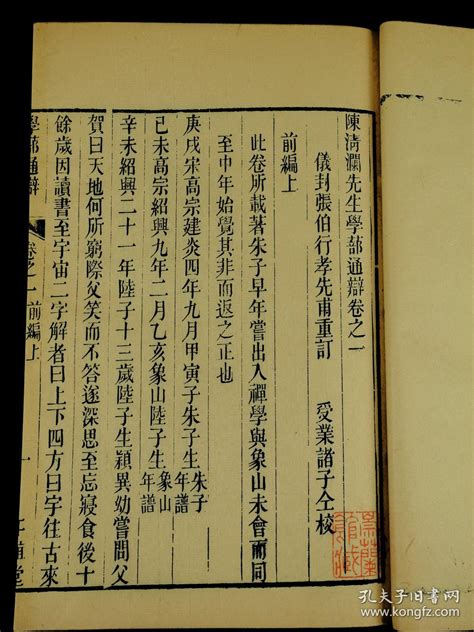 陳清瀾先生學蔀通辯卷之一
儀封張伯行孝先甫重訂　受業諸子仝校
前編上
此卷所載著朱子早年嘗出入禪學與象山未會而同
至中年始覺其非而返之正也
庚戌宋高宗建炎四年九月甲寅子朱子生朱子年譜
己未高宗紹興九年二月乙亥象山陸子生象山年譜
辛未紹興二十一年陸子十三歲陸子生穎異幼嘗問父
賀曰天地何所窮際父笑而不答遂深思至忘寢食後十
餘歲因讀書至宇宙二字解者曰上下四方曰宇往古來
學蔀通辯　卷之一　前編上　一　正誼堂
孔夫子旧书网
kongfz.com